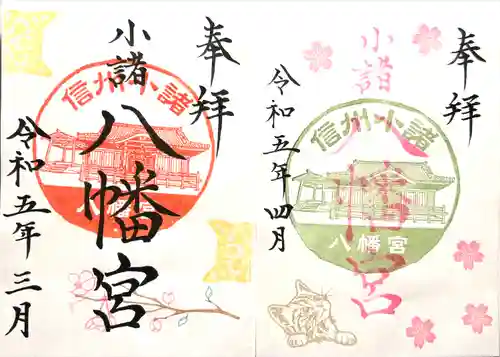 奉拝
小諸
八幡宮
信州小諸
八幡宮
令和五年三月
奉拝
小諸
八幡宮
信州小諸
八幡宮
令和五年四月